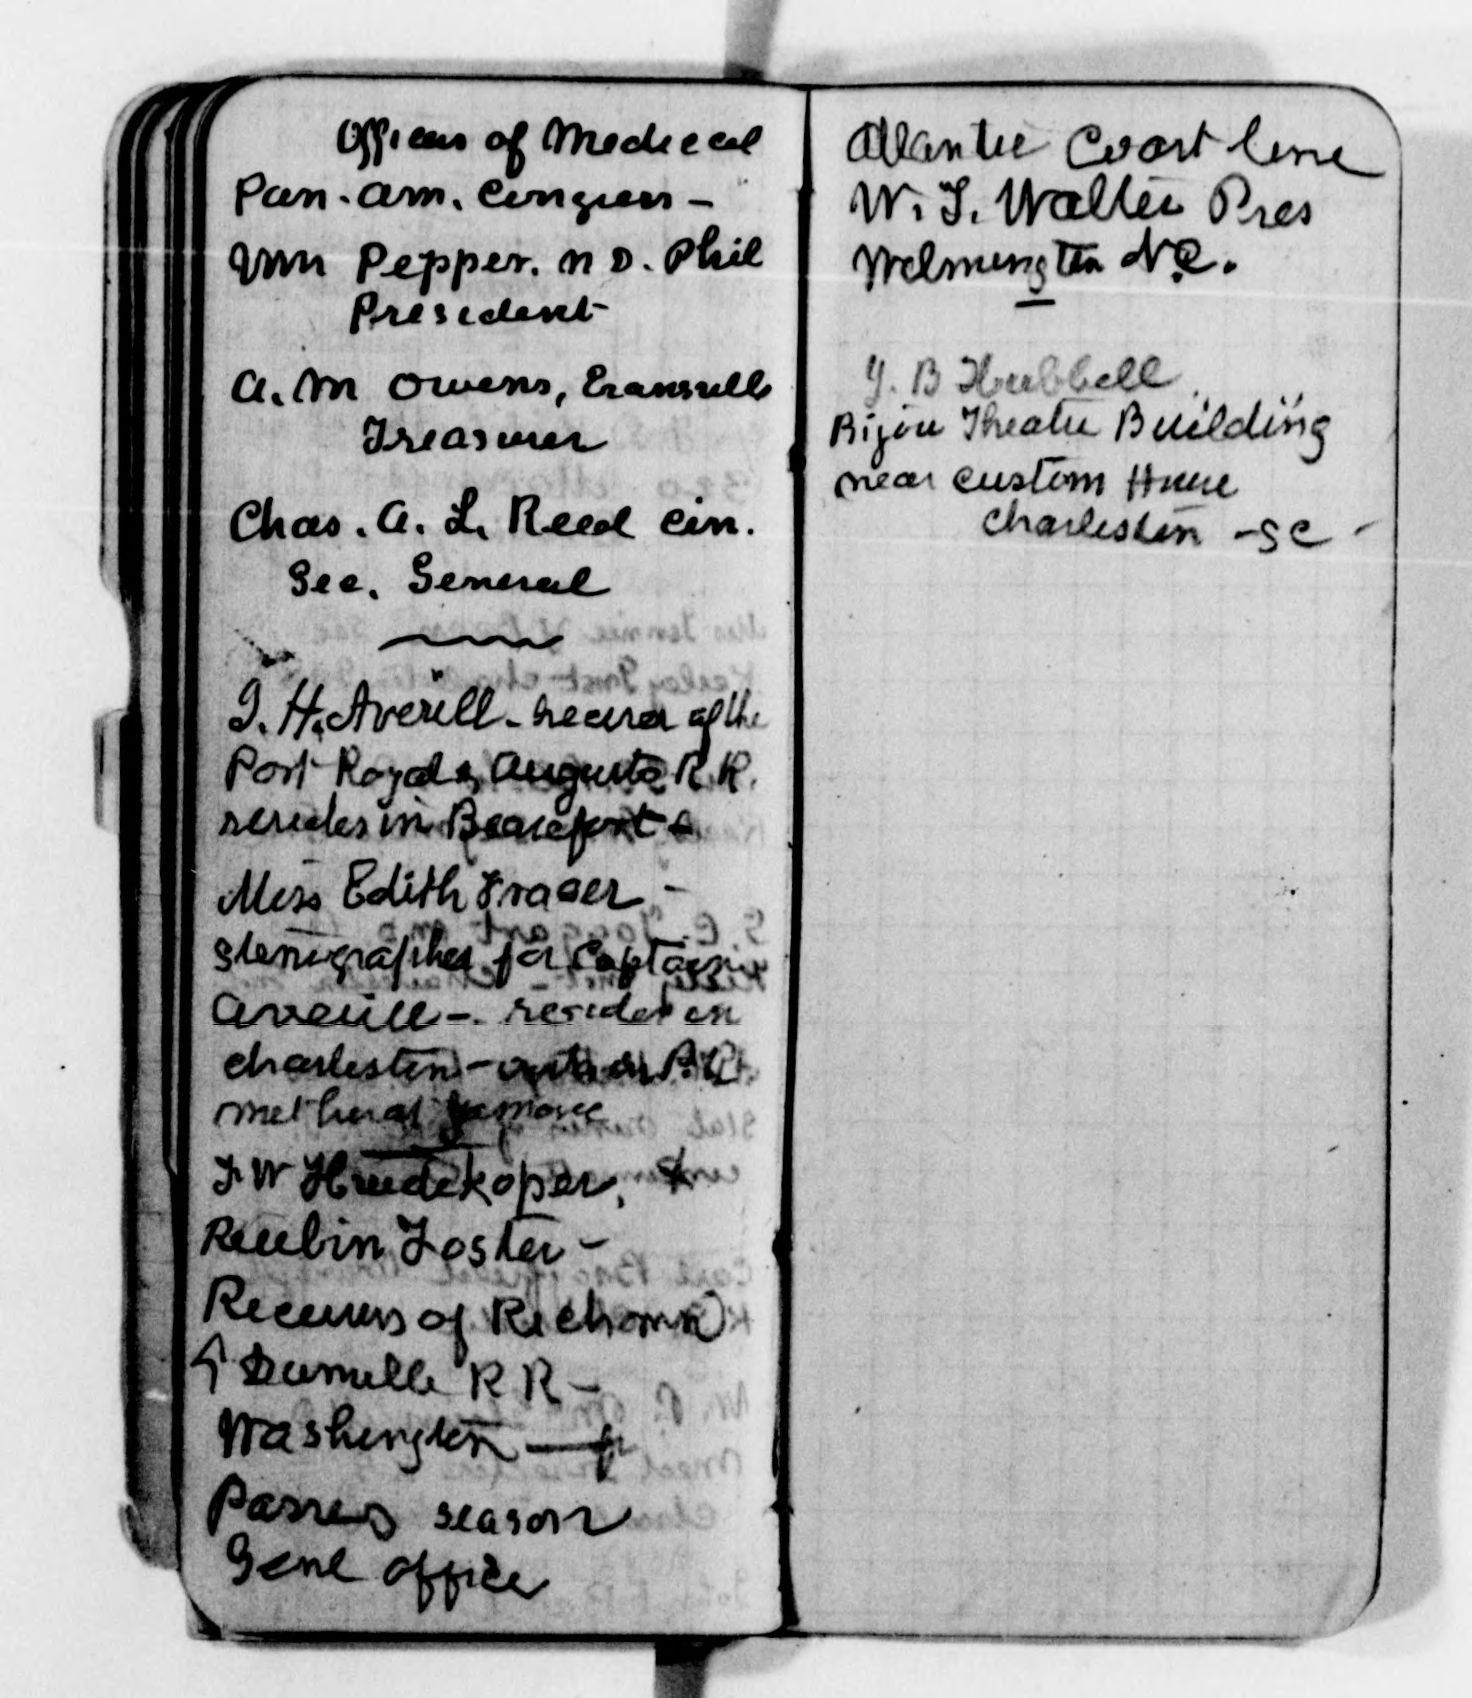 Officers of Medical
Pan. Am. Congress -
Wm Pepper. M D. Phil
President
A. M Owens, Evansville
Treasurer
Chas. A. L. Reed Cin.
Sec. General
J. H. Averill - receiver of the
Port Royal & Augusta R. R.
resides in Beaufort
Miss Edith Fraser -
stenographer for Captain
Averill - resides in
Charleston - P. R.
met her at Yemasee
F W Huidekoper,
Reubin Foster -
Receivers of Richmond
& Danville R R -
Washington
Passes season
Genl office
Atlantic Coast line
W. T. Walter Pres
Wilmington N.C.
J. B Hubbell
Bijou Theatre Building
near Custom House
Charleston - S C -